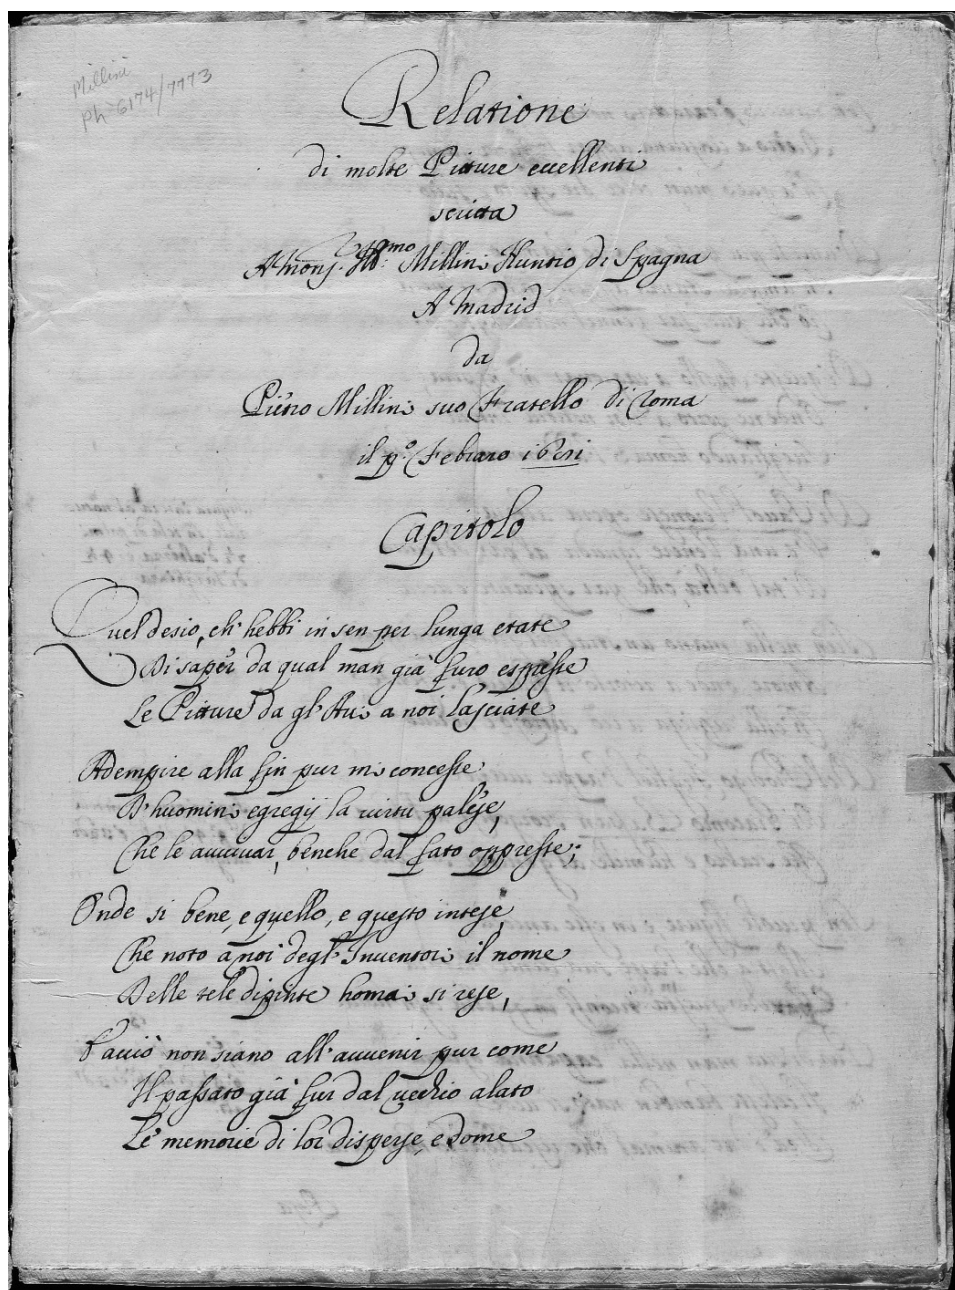 Millini
Ph-6174/7773
Relatione
di molte Pitture eccellenti
scritta
A Mons. Ill.mo Millini Nuntio di Spagna
A Madrid
da
Pietro Millini suo Fratello di Roma
il p.o Febraro
Capitolo
Quel desio, ch' hebbi in sen per lunga etate
Di saper da qual man già furo espresse
Le Pitture da gl' Aui a noi lasciate
Adempire alla fin pur mi concesse
D' huomini egregij la virtù palese,
Che le auuiuar, benche dal fato oppresse;
Onde si bene, e quello, e questo intese,
Che noto a noi degl' Inuentori il nome
Delle tele dipinte homai si rese,
E acciò non siano all' auuenir pur come
Il passato già fur dal vecchio alato
Le memorie di lor disperse, e dome